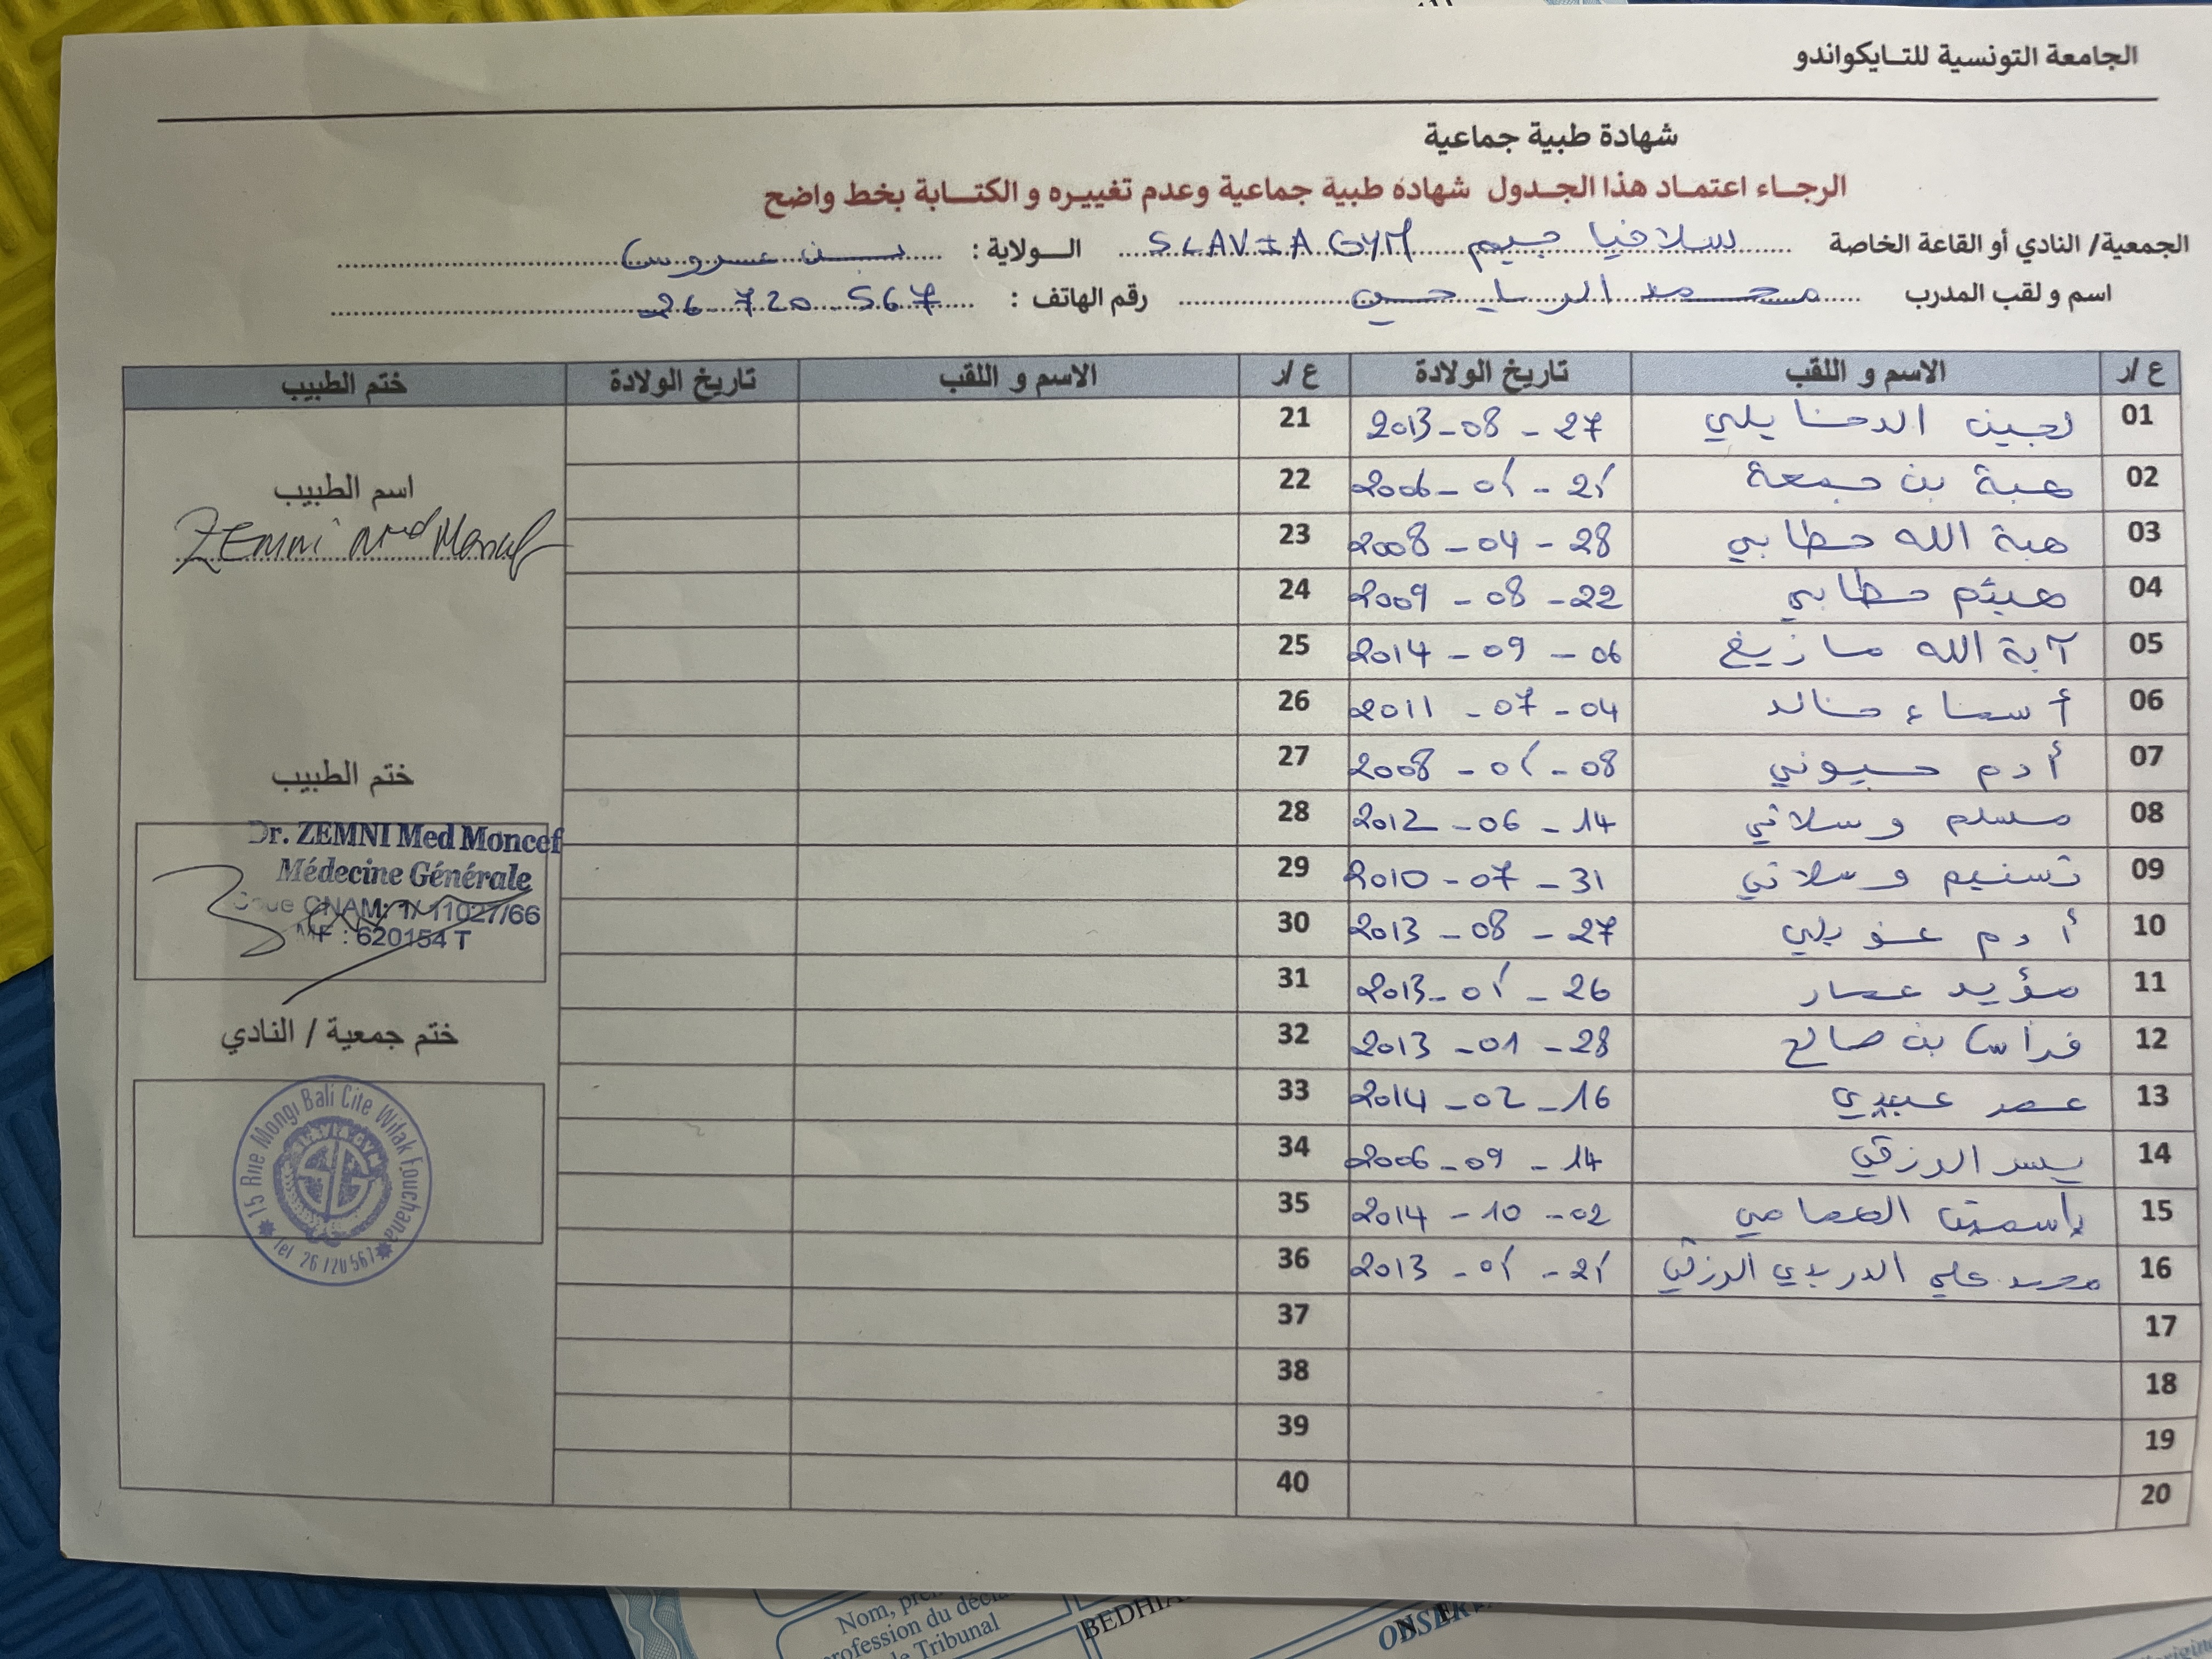 الجامعة التونسية للتايكواندو
شهادة طبية جماعية
الرجاء اعتماد هذا الجدول شهادة طبية جماعية وعدم تغييره و الكتابة بخط واضح
الجمعية/ النادي أو القاعة الخاصة سلافيا جيم SLAVIA GYM الولاية : بن عروس
اسم و لقب المدرب محمد الرياحي رقم الهاتف : 26 720 567
ع/ر الاسم و اللقب تاريخ الولادة ع/ر الاسم و اللقب تاريخ الولادة ختم الطبيب
01 لجين الدخايلي 2013-08-27 21
02 هبة بن جمعة 2006-01-21 22
03 هبة الله حطابي 2008-04-28 23
04 هيثم حطابي 2009-08-22 24
05 آية الله مازيغ 2014-09-06 25
06 أسماء خالد 2011-07-04 26
07 أدم حسيوني 2008-01-08 27
08 مسلم وسلاتي 2012-06-14 28
09 تسنيم وسلاتي 2010-07-31 29
10 أدم 2013-08-27 30
11 مؤيد عمار 2013-01-26 31
12 فراس بن صالح 2013-01-28 32
13 عمر عبيدي 2014-02-16 33
14 يسر الرزقي 2006-09-14 34
15 ياسمين 2014-10-02 35
16 محمد علي الدريدي الرزقي 2013-01-21 36
17 37
18 38
19 39
20 40
اسم الطبيب
Zemni Med Moncef
ختم الطبيب
Dr. ZEMNI Med Moncef
Médecine Générale
CNAM: 1/11027/66
MF : 620154 T
ختم جمعية / النادي
15 Rue Mongi Bali Cite Wifak Fouchana
Tel 26 720 567
SLAVIA GYM
Nom,
profession du
Tribunal
BEDHIA